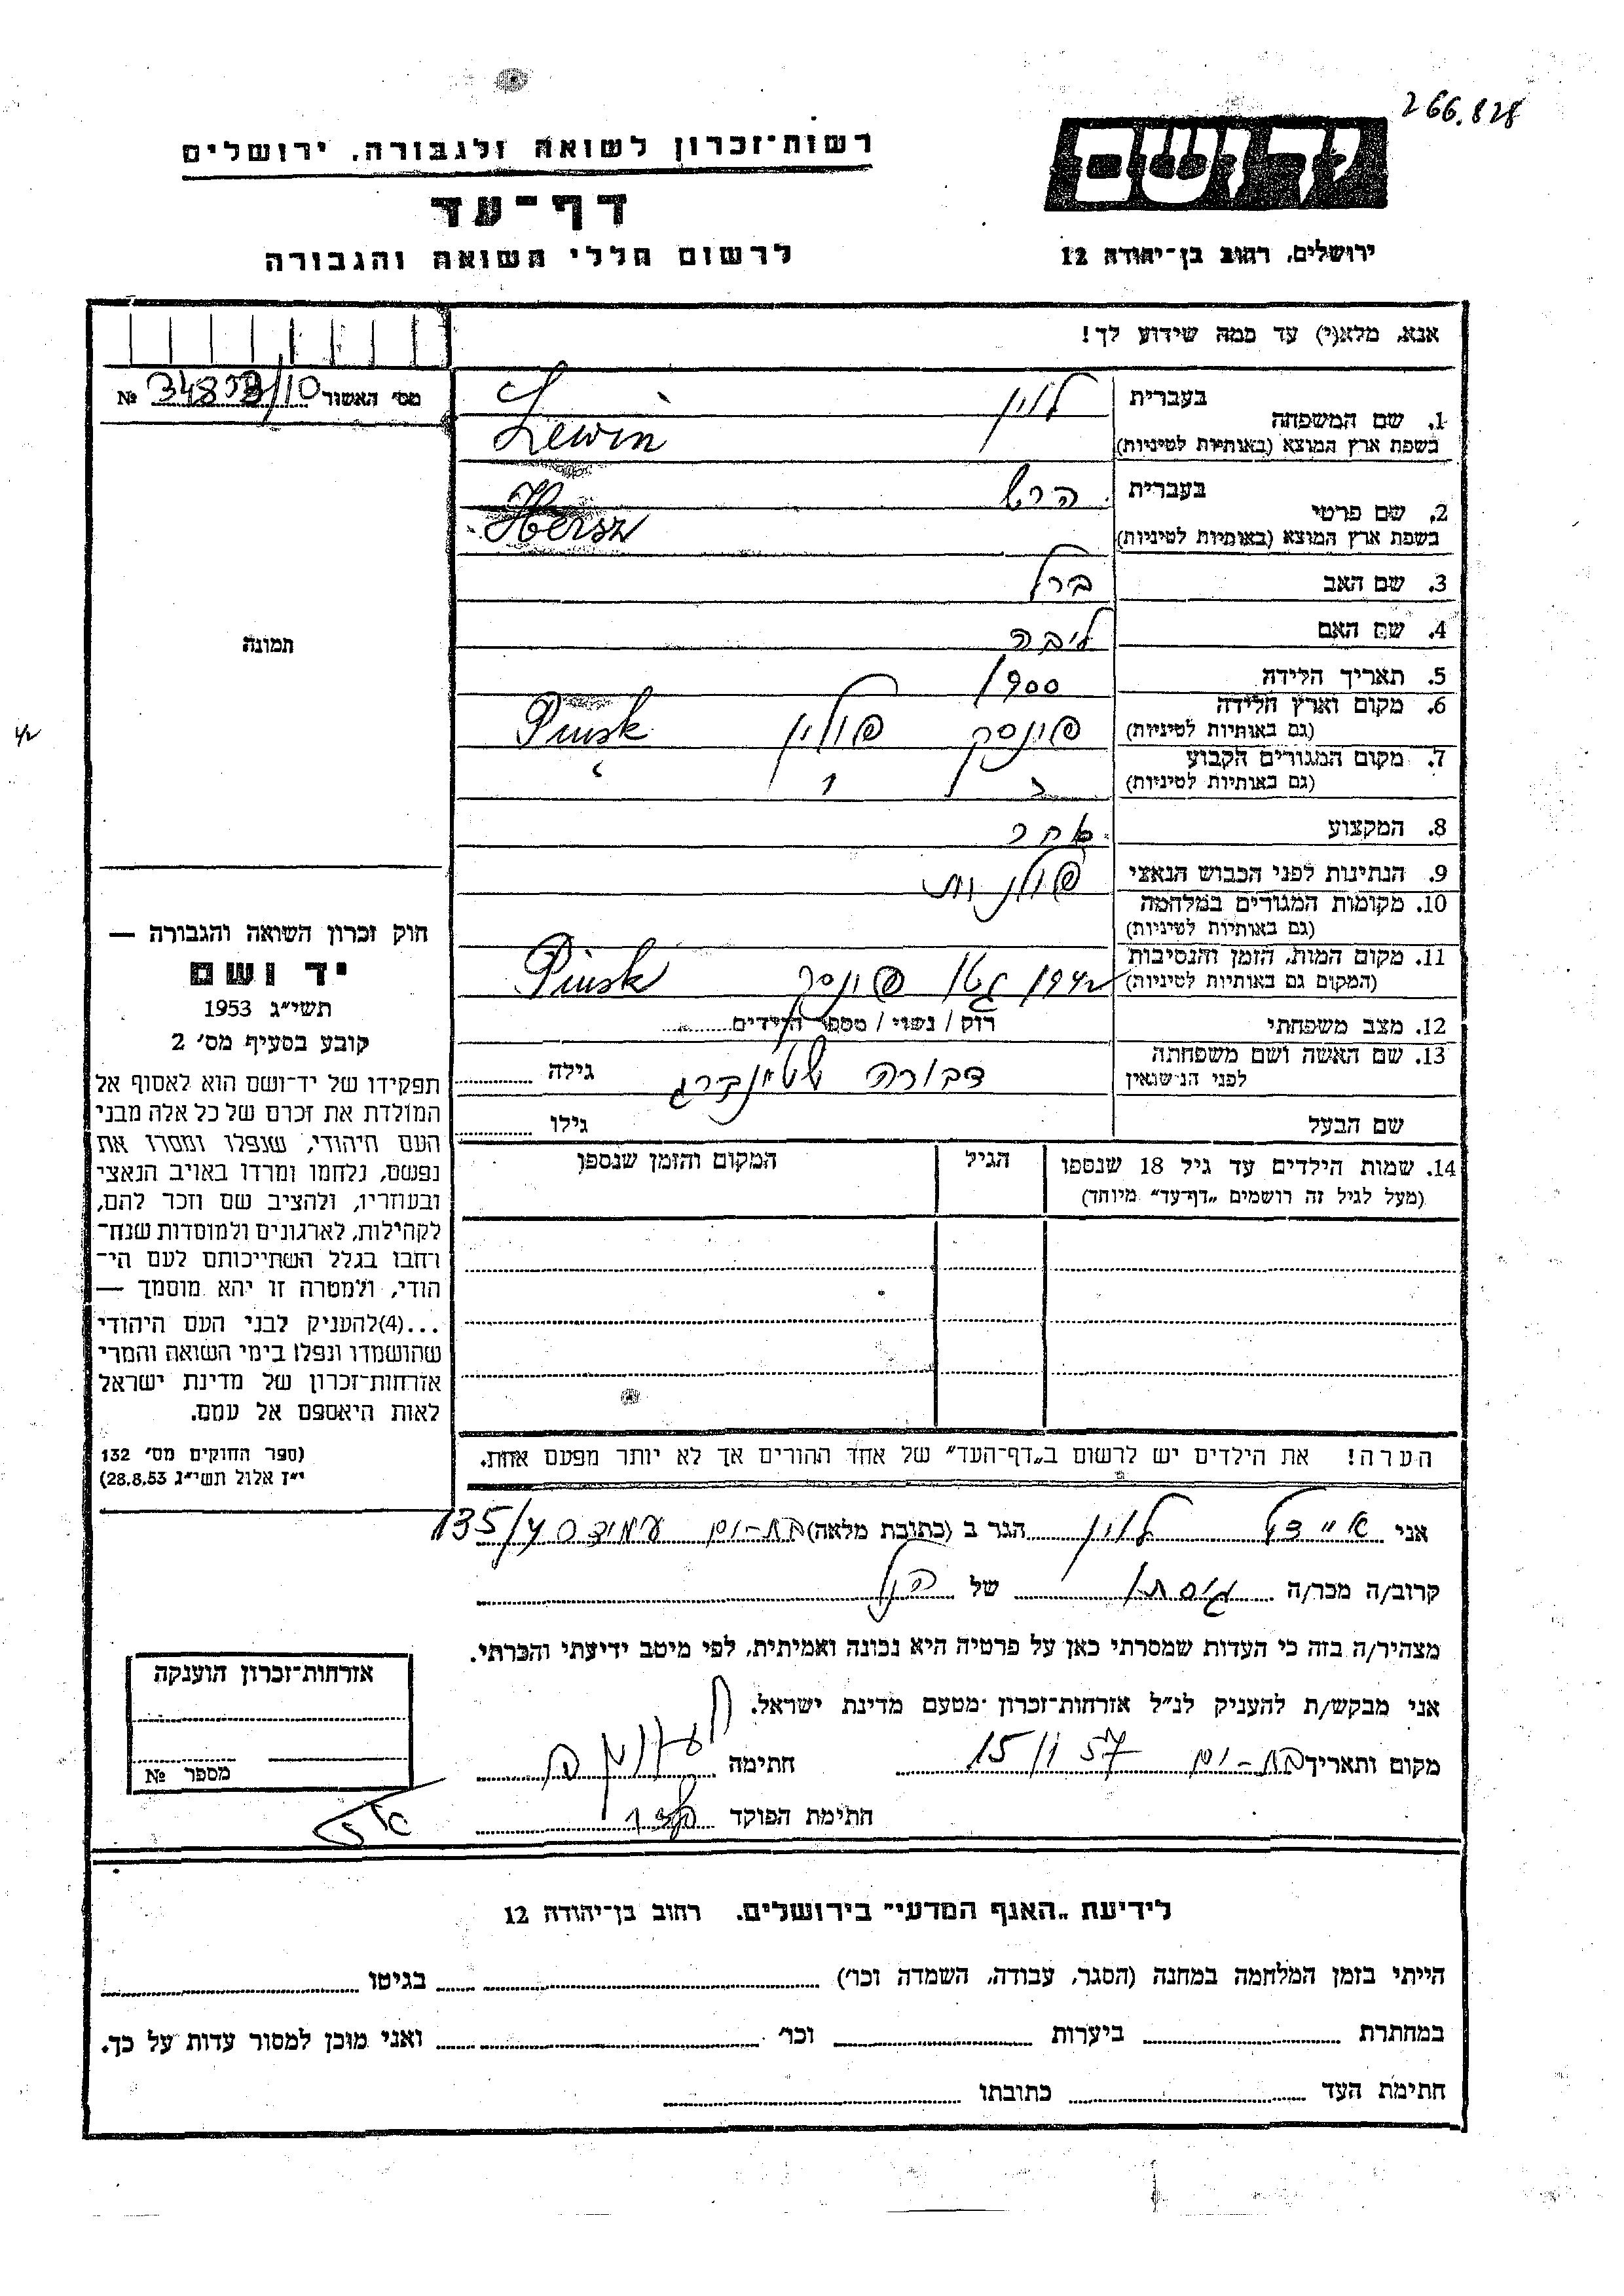 266.828
יד ושם
רשות־זכרון לשואה ולגבורה, ירושלים
דף־עד
לרשום חללי השואה והגבורה
ירושלים, רחוב בן־יהודה 12
אנא, מלא(י) עד כמה שידוע לך!
מס' האשור №
1. שם המשפחה
בעברית לוין
בשפת ארץ המוצא (באותיות לטיניות) Lewin
2. שם פרטי
בעברית הרש
בשפת ארץ המוצא (באותיות לטיניות) Hersz
3. שם האב ברל
4. שם האם ליבה
5. תאריך הלידה 1900
6. מקום וארץ הלידה
(גם באותיות לטיניות) פינסק פולין Pinsk
7. מקום המגורים הקבוע
(גם באותיות לטיניות)
8. המקצוע
9. הנתינות לפני הכבוש הנאצי פולנית
10. מקומות המגורים במלחמה
(גם באותיות לטיניות)
11. מקום המות, הזמן והנסיבות
(המקום גם באותיות לטיניות) 1942 גטו פינסק Pinsk
12. מצב משפחתי רוק / נשוי / מספר הילדים
13. שם האשה ושם משפחתה
לפני הנישואין דבורה שטינברג גילה
שם הבעל גילו
14. שמות הילדים עד גיל 18 שנספו
(מעל לגיל זה רושמים „דף־עד" מיוחד)
הגיל
המקום והזמן שנספו
הערה! את הילדים יש לרשום ב„דף־העד" של אחד ההורים אך לא יותר מפעם אחת.
תמונה
חוק זכרון השואה והגבורה —
יד ושם
תשי"ג 1953
קובע בסעיף מס' 2
תפקידו של יד־ושם הוא לאסוף אל
המולדת את זכרם של כל אלה מבני
העם היהודי, שנפלו ומסרו את
נפשם, נלחמו ומרדו באויב הנאצי
ובעוזריו, ולהציב שם וזכר להם,
לקהילות, לארגונים ולמוסדות שנח־
רחבו בגלל השתייכותם לעם הי־
הודי, ולמטרה זו יהא מוסמך —
...(4)להעניק לבני העם היהודי
שהושמדו ונפלו בימי השואה והמרי
אזרחות־זכרון של מדינת ישראל
לאות היאספם אל עמם.
(ספר החוקים מס' 132
י"ז אלול תשי"ג 28.8.53)
אני איידל לוין הגר ב (כתובת מלאה) בת-ים עמידר 135/4
קרוב/ה מכר/ה גיסתו של הנ"ל
מצהיר/ה בזה כי העדות שמסרתי כאן על פרטיה היא נכונה ואמיתית, לפי מיטב ידיעתי והכרתי.
אני מבקש/ת להעניק לנ"ל אזרחות־זכרון מטעם מדינת ישראל.
מקום ותאריך בת-ים 15/ 57 חתימה
חתימת הפוקד
אזרחות־זכרון הוענקה
מספר №
לידיעת „האגף המדעי" בירושלים. רחוב בן־יהודה 12
הייתי בזמן המלחמה במחנה (הסגר, עבודה, השמדה וכו') בגיטו
במחתרת ביערות וכו' ואני מוכן למסור עדות על כך.
חתימת העד כתובתו